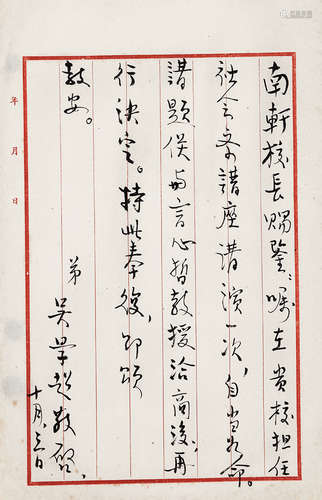 南軒校長賜鑒：囑在貴校担任
社会學講座講演一次，自当如命。
講題俟与言心哲教授洽商後，再
行決定。特此奉復，即頌
教安。
弟
吴學超敬啟
十月、三日
年月日